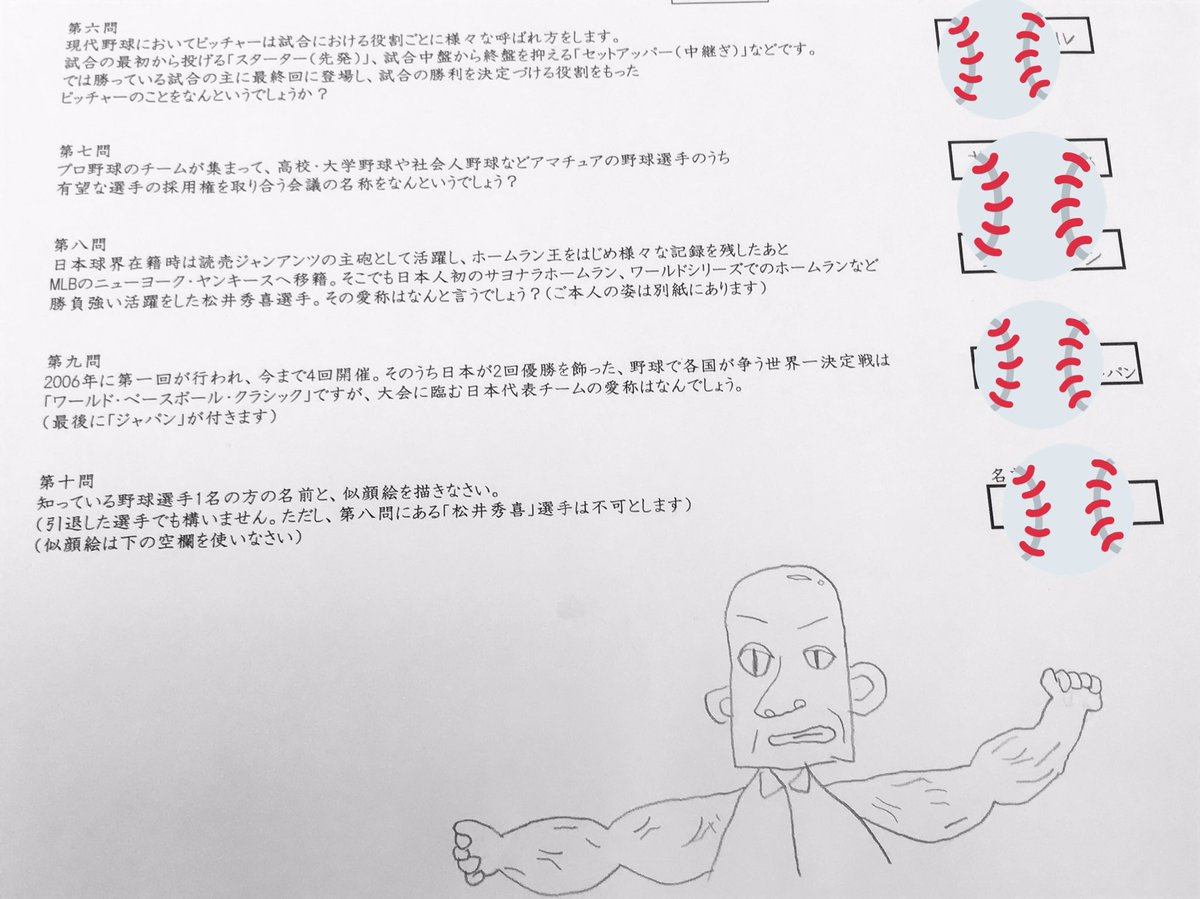 第六問
現代野球においてピッチャーは試合における役割ごとに様々な呼ばれ方をします。
試合の最初から投げる「スターター(先発)」、試合中盤から終盤を抑える「セットアッパー(中継ぎ)」などです。
では勝っている試合の主に最終回に登場し、試合の勝利を決定づける役割をもった
ピッチャーのことをなんというでしょうか?
ル
第七問
プロ野球のチームが集まって、高校・大学野球や社会人野球などアマチュアの野球選手のうち
有望な選手の採用権を取り合う会議の名称をなんというでしょう?
第八問
日本球界在籍時は読売ジャンアンツの主砲として活躍し、ホームラン王をはじめ様々な記録を残したあと
MLBのニューヨーク・ヤンキースへ移籍。そこでも日本人初のサヨナラホームラン、ワールドシリーズでのホームランなど
勝負強い活躍をした松井秀喜選手。その愛称はなんと言うでしょう?(ご本人の姿は別紙にあります)
第九問
2006年に第一回が行われ、今まで4回開催。そのうち日本が2回優勝を飾った、野球で各国が争う世界一決定戦は
「ワールド・ベースボール・クラシック」ですが、大会に臨む日本代表チームの愛称はなんでしょう。
(最後に「ジャパン」が付きます)
パン
第十問
知っている野球選手1名の方の名前と、似顔絵を描きなさい。
(引退した選手でも構いません。ただし、第八問にある「松井秀喜」選手は不可とします)
(似顔絵は下の空欄を使いなさい)
名